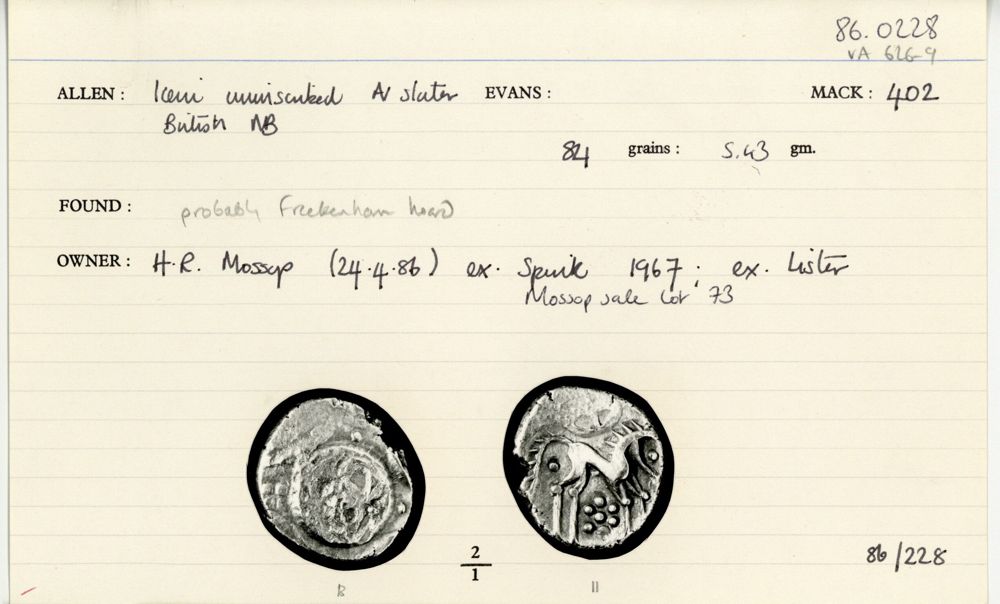 86.0228
VA 626-9
ALLEN: Iceni uninscribed AV stater EVANS: MACK: 402
British NB
84 grains: 5.43 gm.
FOUND: probably Freckenham hoard
OWNER: H.R. Mossop (24.4.86) ex. Spink 1967; ex. Lister
Mossop sale Lot 73
2
1
86/228